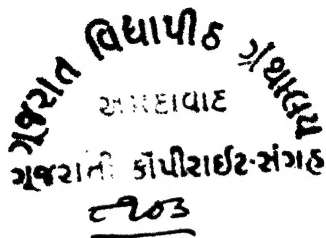 ગૂજરાત વિદ્યાપીઠ ગ્રંથાલય
અમદાવાદ
ગૂજરાતી કૉપીરાઈટ-સંગ્રહ
૮૧૦૩